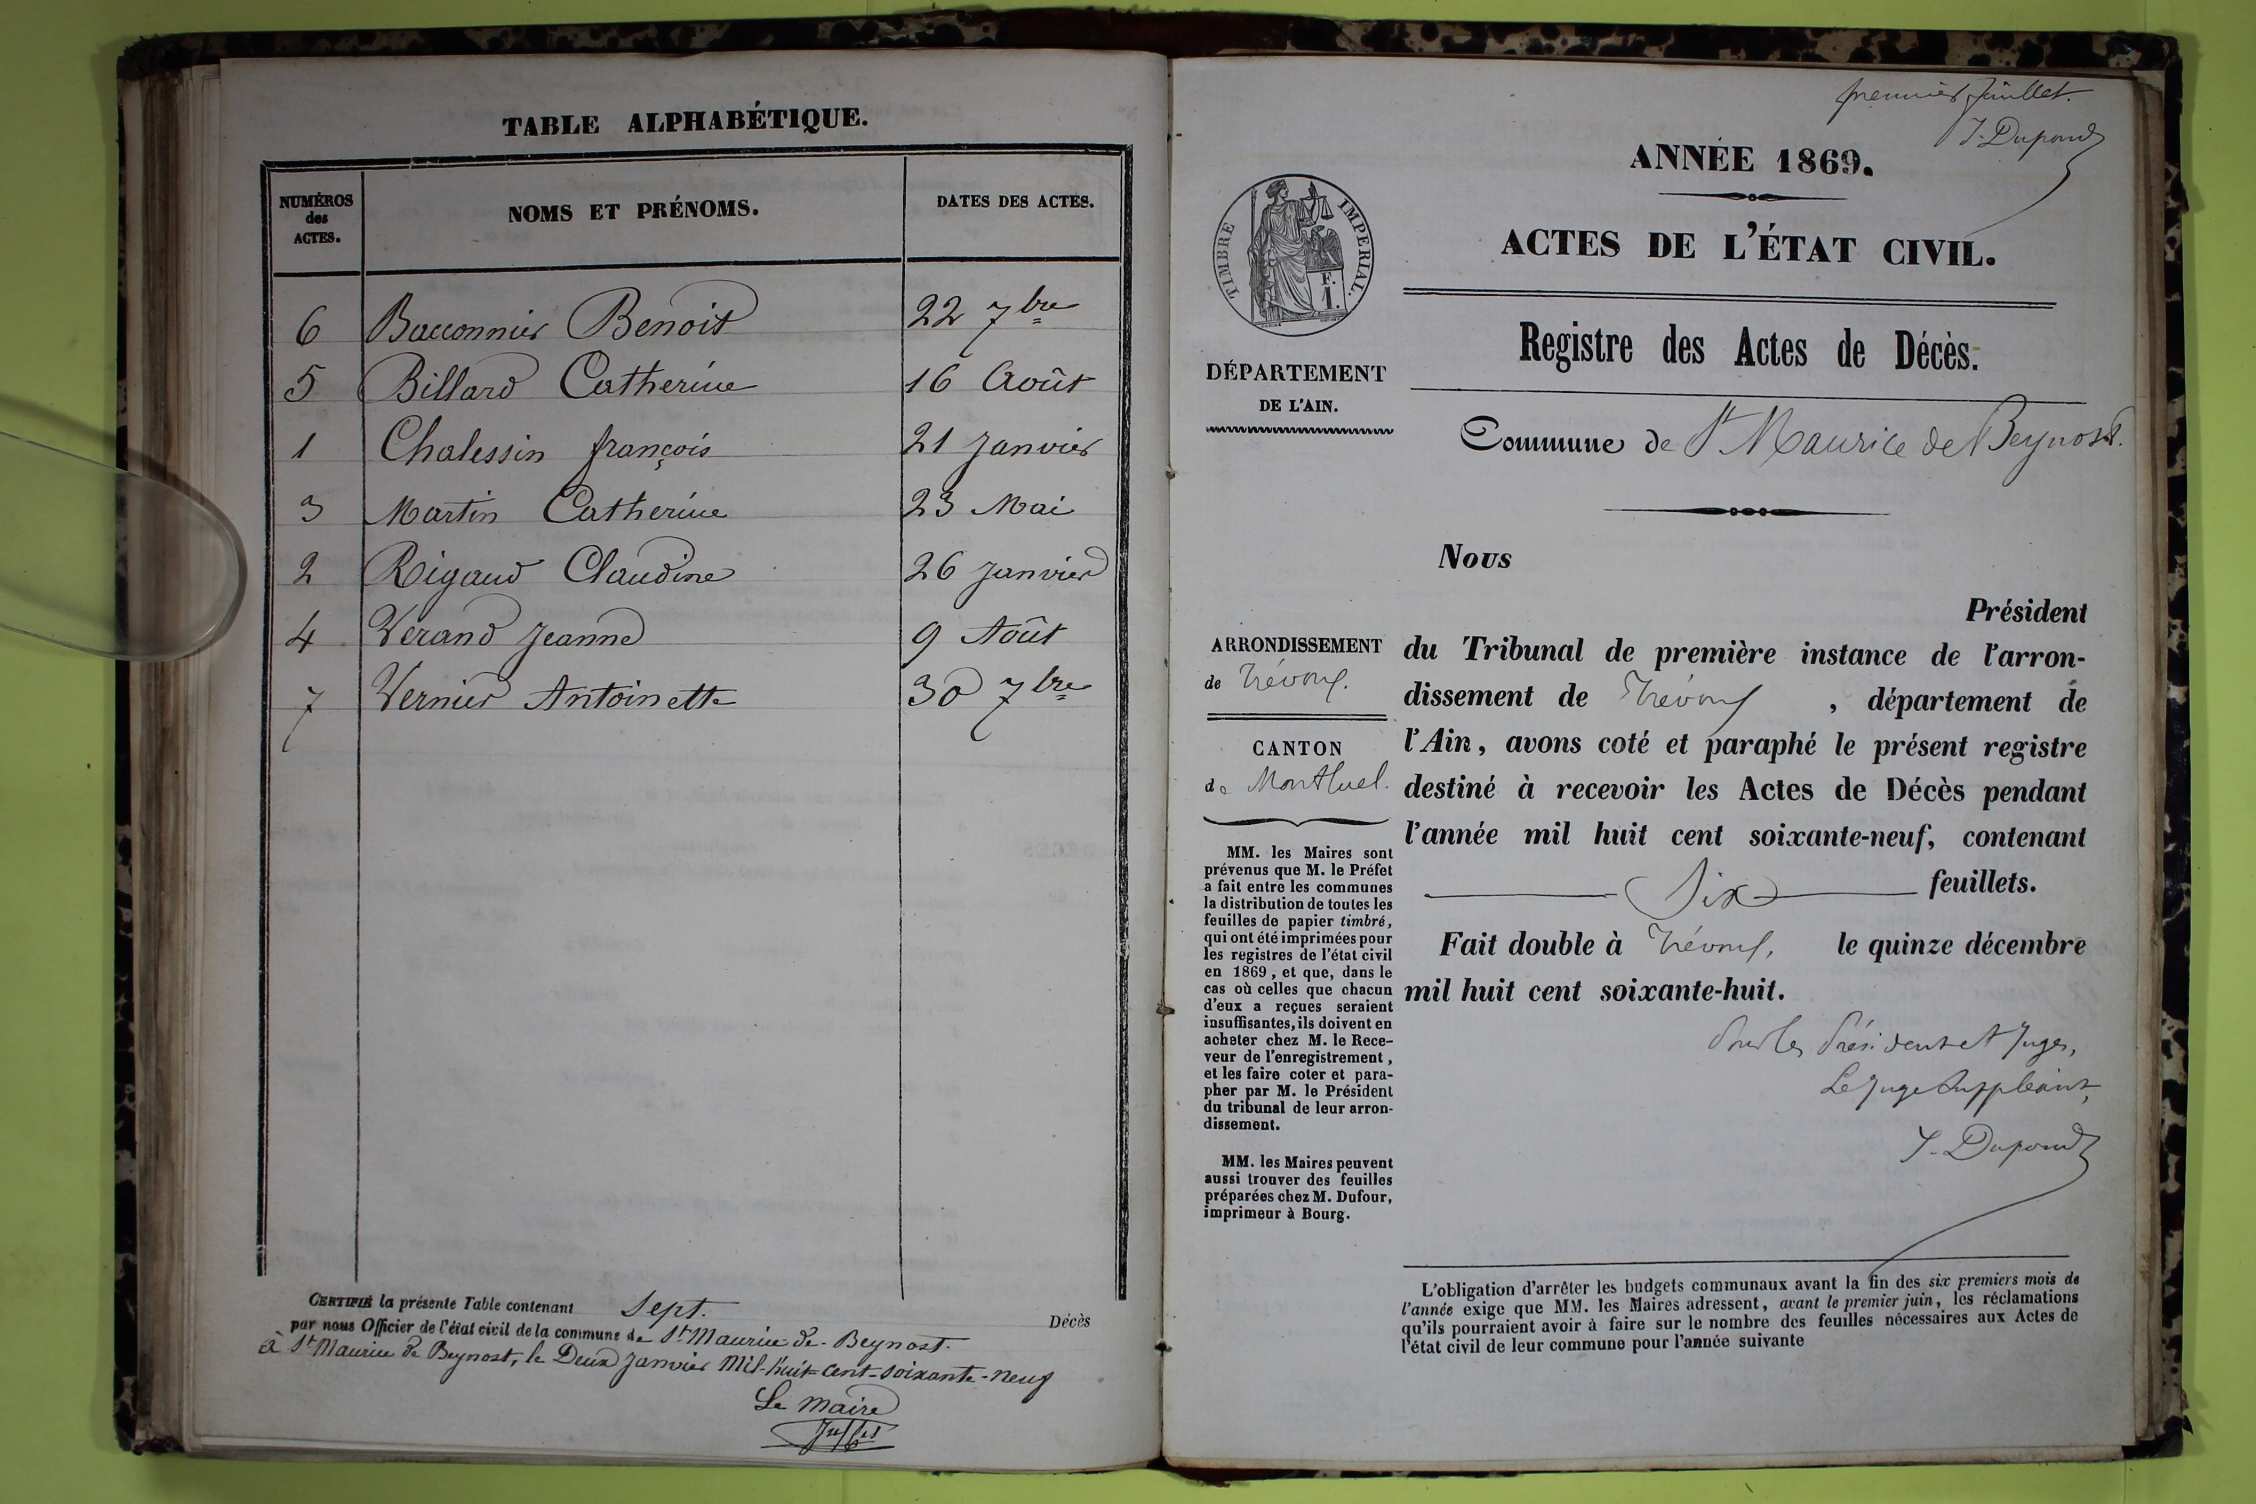 TABLE ALPHABÉTIQUE.
NUMÉROS
des
ACTES.
NOMS ET PRÉNOMS.
DATES DES ACTES.
6 Bacconnier Benoit 22 7bre
5 Billard Catherine 16 Août
1 Chalessin françois 21 Janvier
3 Martin Catherine 23 Mai
2 Rigaud Claudine 26 Janvier
4 Verand Jeanne 9 Août
7 Vernier Antoinette 30 7bre
CERTIFIÉ la présente Table contenant Sept. Décès
par nous Officier de l'état civil de la commune de St Maurice-de-Beynost.
à St Maurice de Beynost, le Deux Janvier Mil-huit-cent-soixante-neuf
Le Maire
premier feuillet.
J. Dupond
ANNÉE 1869.
ACTES DE L'ÉTAT CIVIL.
TIMBRE IMPERIAL.
F.
1.
Registre des Actes de Décès.
DÉPARTEMENT
DE L'AIN.
Commune de St Maurice de Beynost.
ARRONDISSEMENT
de Trévoux.
CANTON
de Montluel.
MM. les Maires sont
prévenus que M. le Préfet
a fait entre les communes
la distribution de toutes les
feuilles de papier timbré,
qui ont été imprimées pour
les registres de l'état civil
en 1869, et que, dans le
cas où celles que chacun
d'eux a reçues seraient
insuffisantes, ils doivent en
acheter chez M. le Rece-
veur de l'enregistrement,
et les faire coter et para-
pher par M. le Président
du tribunal de leur arron-
dissement.
MM. les Maires peuvent
aussi trouver des feuilles
préparées chez M. Dufour,
imprimeur à Bourg.
Nous
Président
du Tribunal de première instance de l'arron-
dissement de Trévoux, département de
l'Ain, avons coté et paraphé le présent registre
destiné à recevoir les Actes de Décès pendant
l'année mil huit cent soixante-neuf, contenant
Six feuillets.
Fait double à Trévoux, le quinze décembre
mil huit cent soixante-huit.
Pour les Président et Juges,
Le Juge Suppléant,
J. Dupond
L'obligation d'arrêter les budgets communaux avant la fin des six premiers mois de
l'année exige que MM. les Maires adressent, avant le premier juin, les réclamations
qu'ils pourraient avoir à faire sur le nombre des feuilles nécessaires aux Actes de
l'état civil de leur commune pour l'année suivante